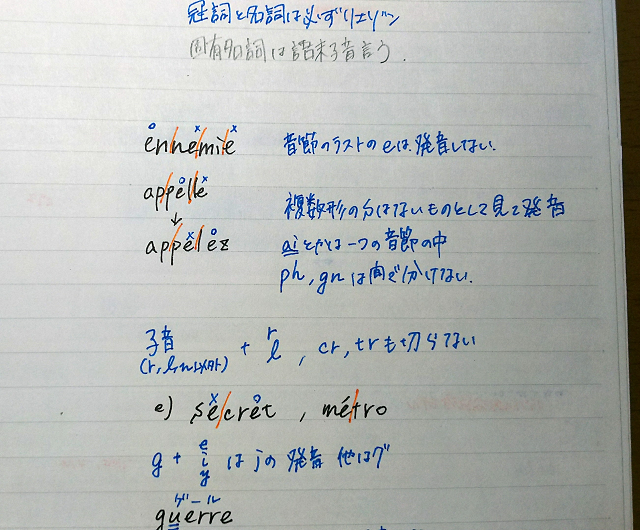 冠詞と名詞は必ずリエゾン
固有名詞は語末子音言う.
en/ne/mi/e 音節のラストのeは、発音しない.
ap/pel/le
↓ 複数形の分はないものとして見て発音
ap/pe/lez aiとかは一つの音節の中
ph, gnは間で分けない.
子音 + r l , cr, trも切らない
(r, l, n以外)
e) se/cret , mé/tro
g + e i y はjの発音 他はグ
ゲール
guerre